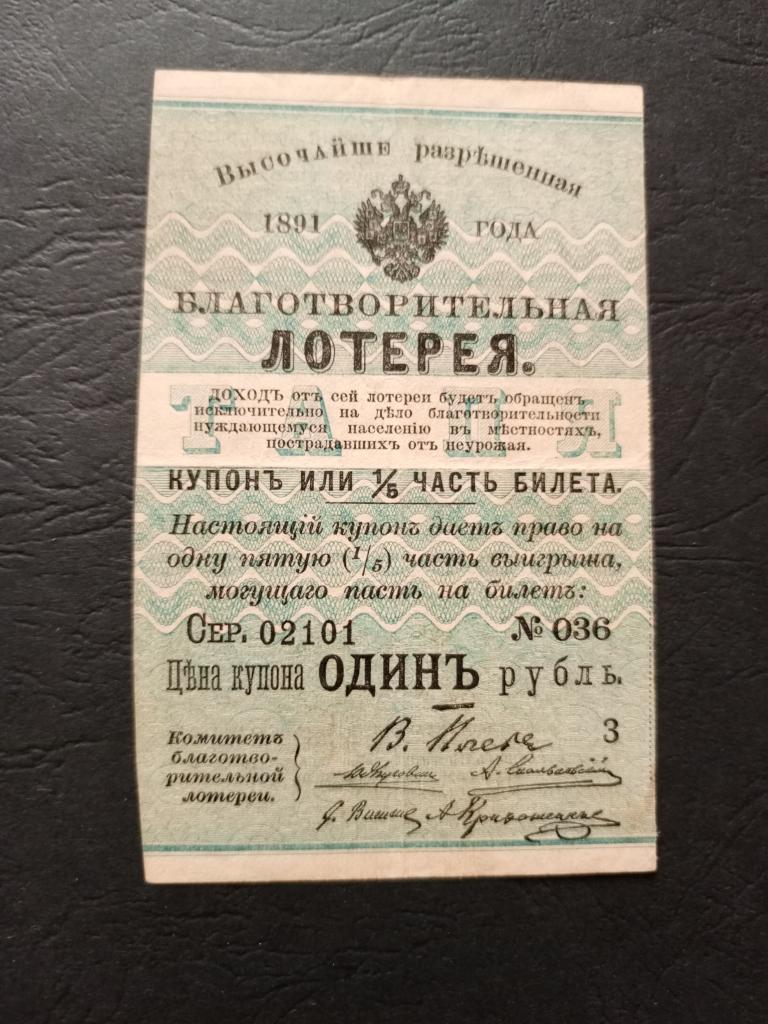 Высочайше разрѣшенная
1891 ГОДА
БЛАГОТВОРИТЕЛЬНАЯ
ЛОТЕРЕЯ.
ДОХОДЪ отъ сей лотереи будетъ обращенъ
исключительно на дѣло благотворительности
нуждающемуся населенію въ мѣстностяхъ,
пострадавшихъ отъ неурожая.
КУПОНЪ ИЛИ 1/5 ЧАСТЬ БИЛЕТА.
Настоящій купонъ даетъ право на
одну пятую (1/5) часть выигрыша,
могущаго пасть на билетъ:
СЕР. 02101 № 036
Цѣна купона ОДИНЪ рубль.
В. Плеве 3
Комитетъ
благотво-
рительной
лотереи.